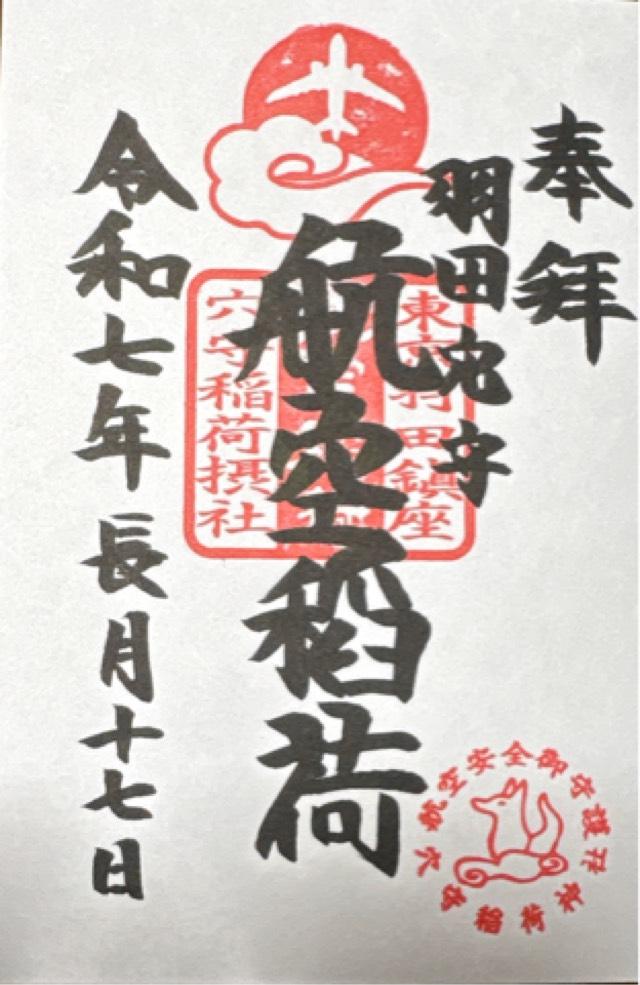 奉拝
羽田穴守
航空稲荷
令和七年長月十七日
東京羽田鎮座
穴守稲荷摂社
航空安全御守護所
穴守稲荷神社